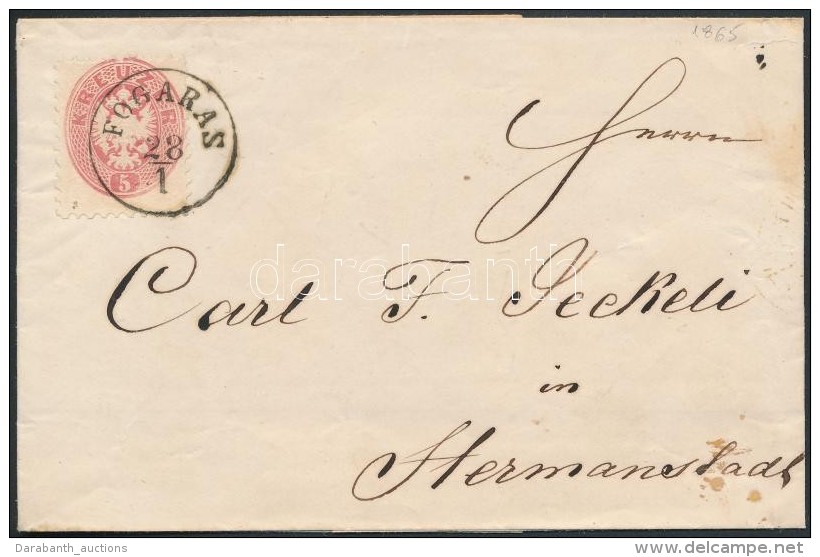 1865
KREUZER
FOGARAS
28
1
5
Herrn
Carl F. Jeckeli
in
Hermanstadt
darabanth
Darabanth_auctions
delcampe.net